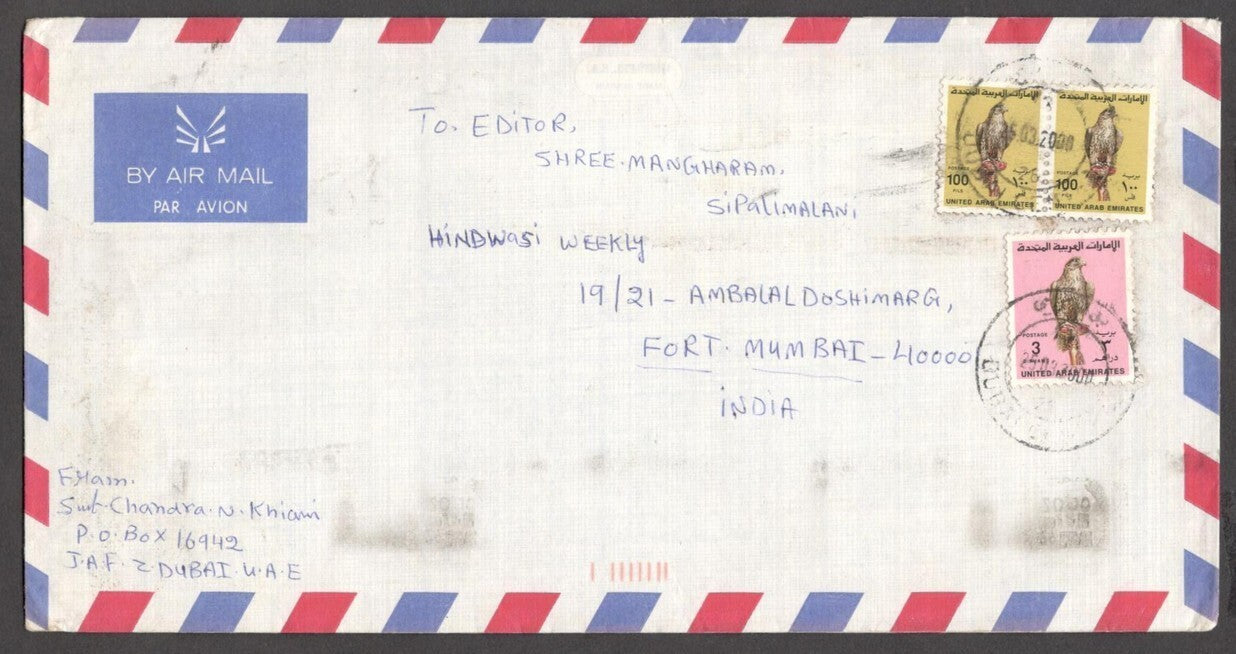 BY AIR MAIL
PAR AVION
To. EDITOR,
SHREE. MANGHARAM.
SiPaliMALANi,
HiNDWasi WEEKLY
19/21 - AMBALAL DOSHIMARG,
FORT. MUMBAI - 40000
INDIA
الإمارات العربية المتحدة
POSTAGE
100
FILS
١٠٠
UNITED ARAB EMIRATES
الإمارات العربية المتحدة
POSTAGE
100
FILS
١٠٠
UNITED ARAB EMIRATES
03.2000
الإمارات العربية المتحدة
POSTAGE
بريد
3
٣
DIRHAMS
UNITED ARAB EMIRATES
2000
FHam.
Smt. Chandra. N. Khiani
P.O. BOX 16942
J.A.F. Z DUBAI. U.A.E